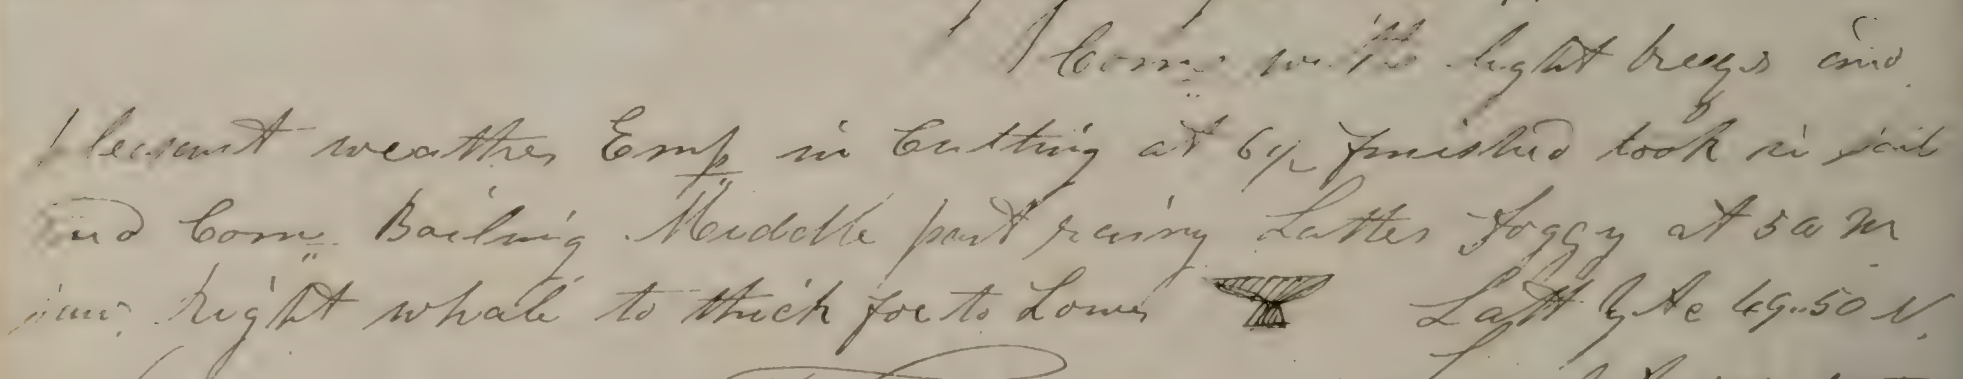 Comc with light breezes and
pleasant weather Emp in Cutting at 6 finished took in sail
and Comc Boiling Middle part rainy Latter foggy at 5 a m
saw Right whale to thick for to Lower Latt by Ac 49..50 N